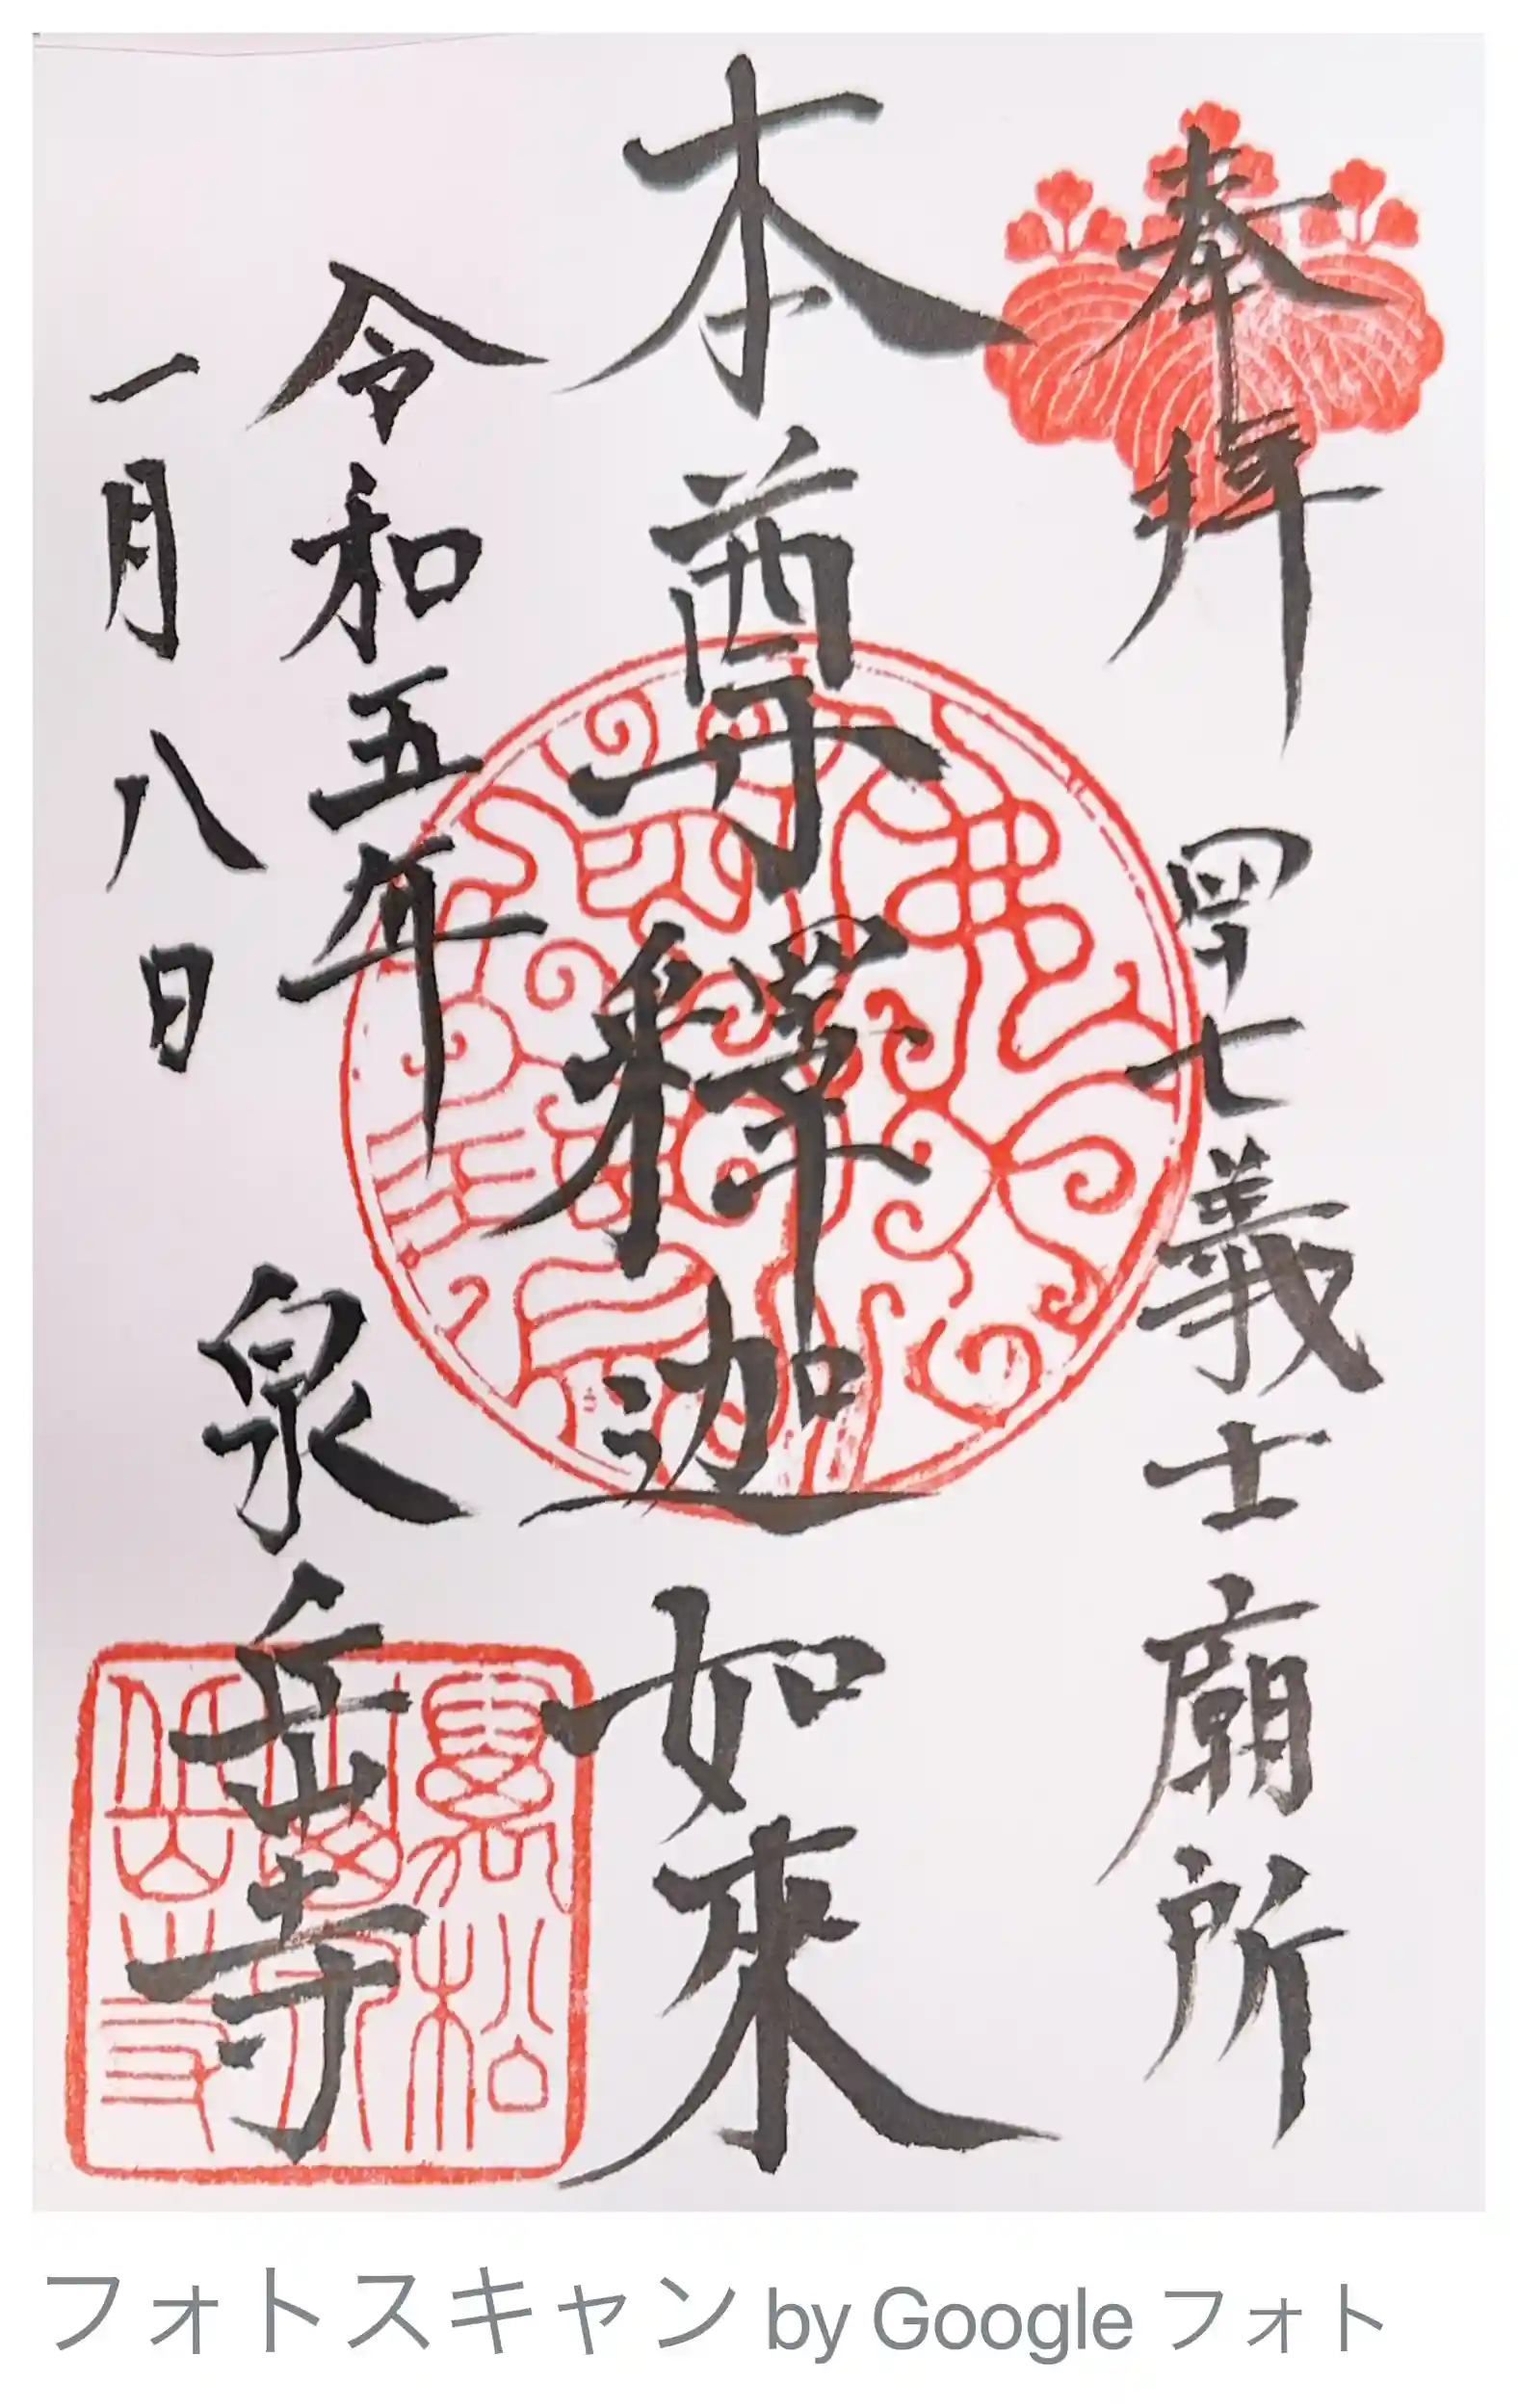 奉拝 四十七義士廟所
本尊釋迦如來
令和五年
一月八日
泉岳寺
フォトスキャン by Google フォト